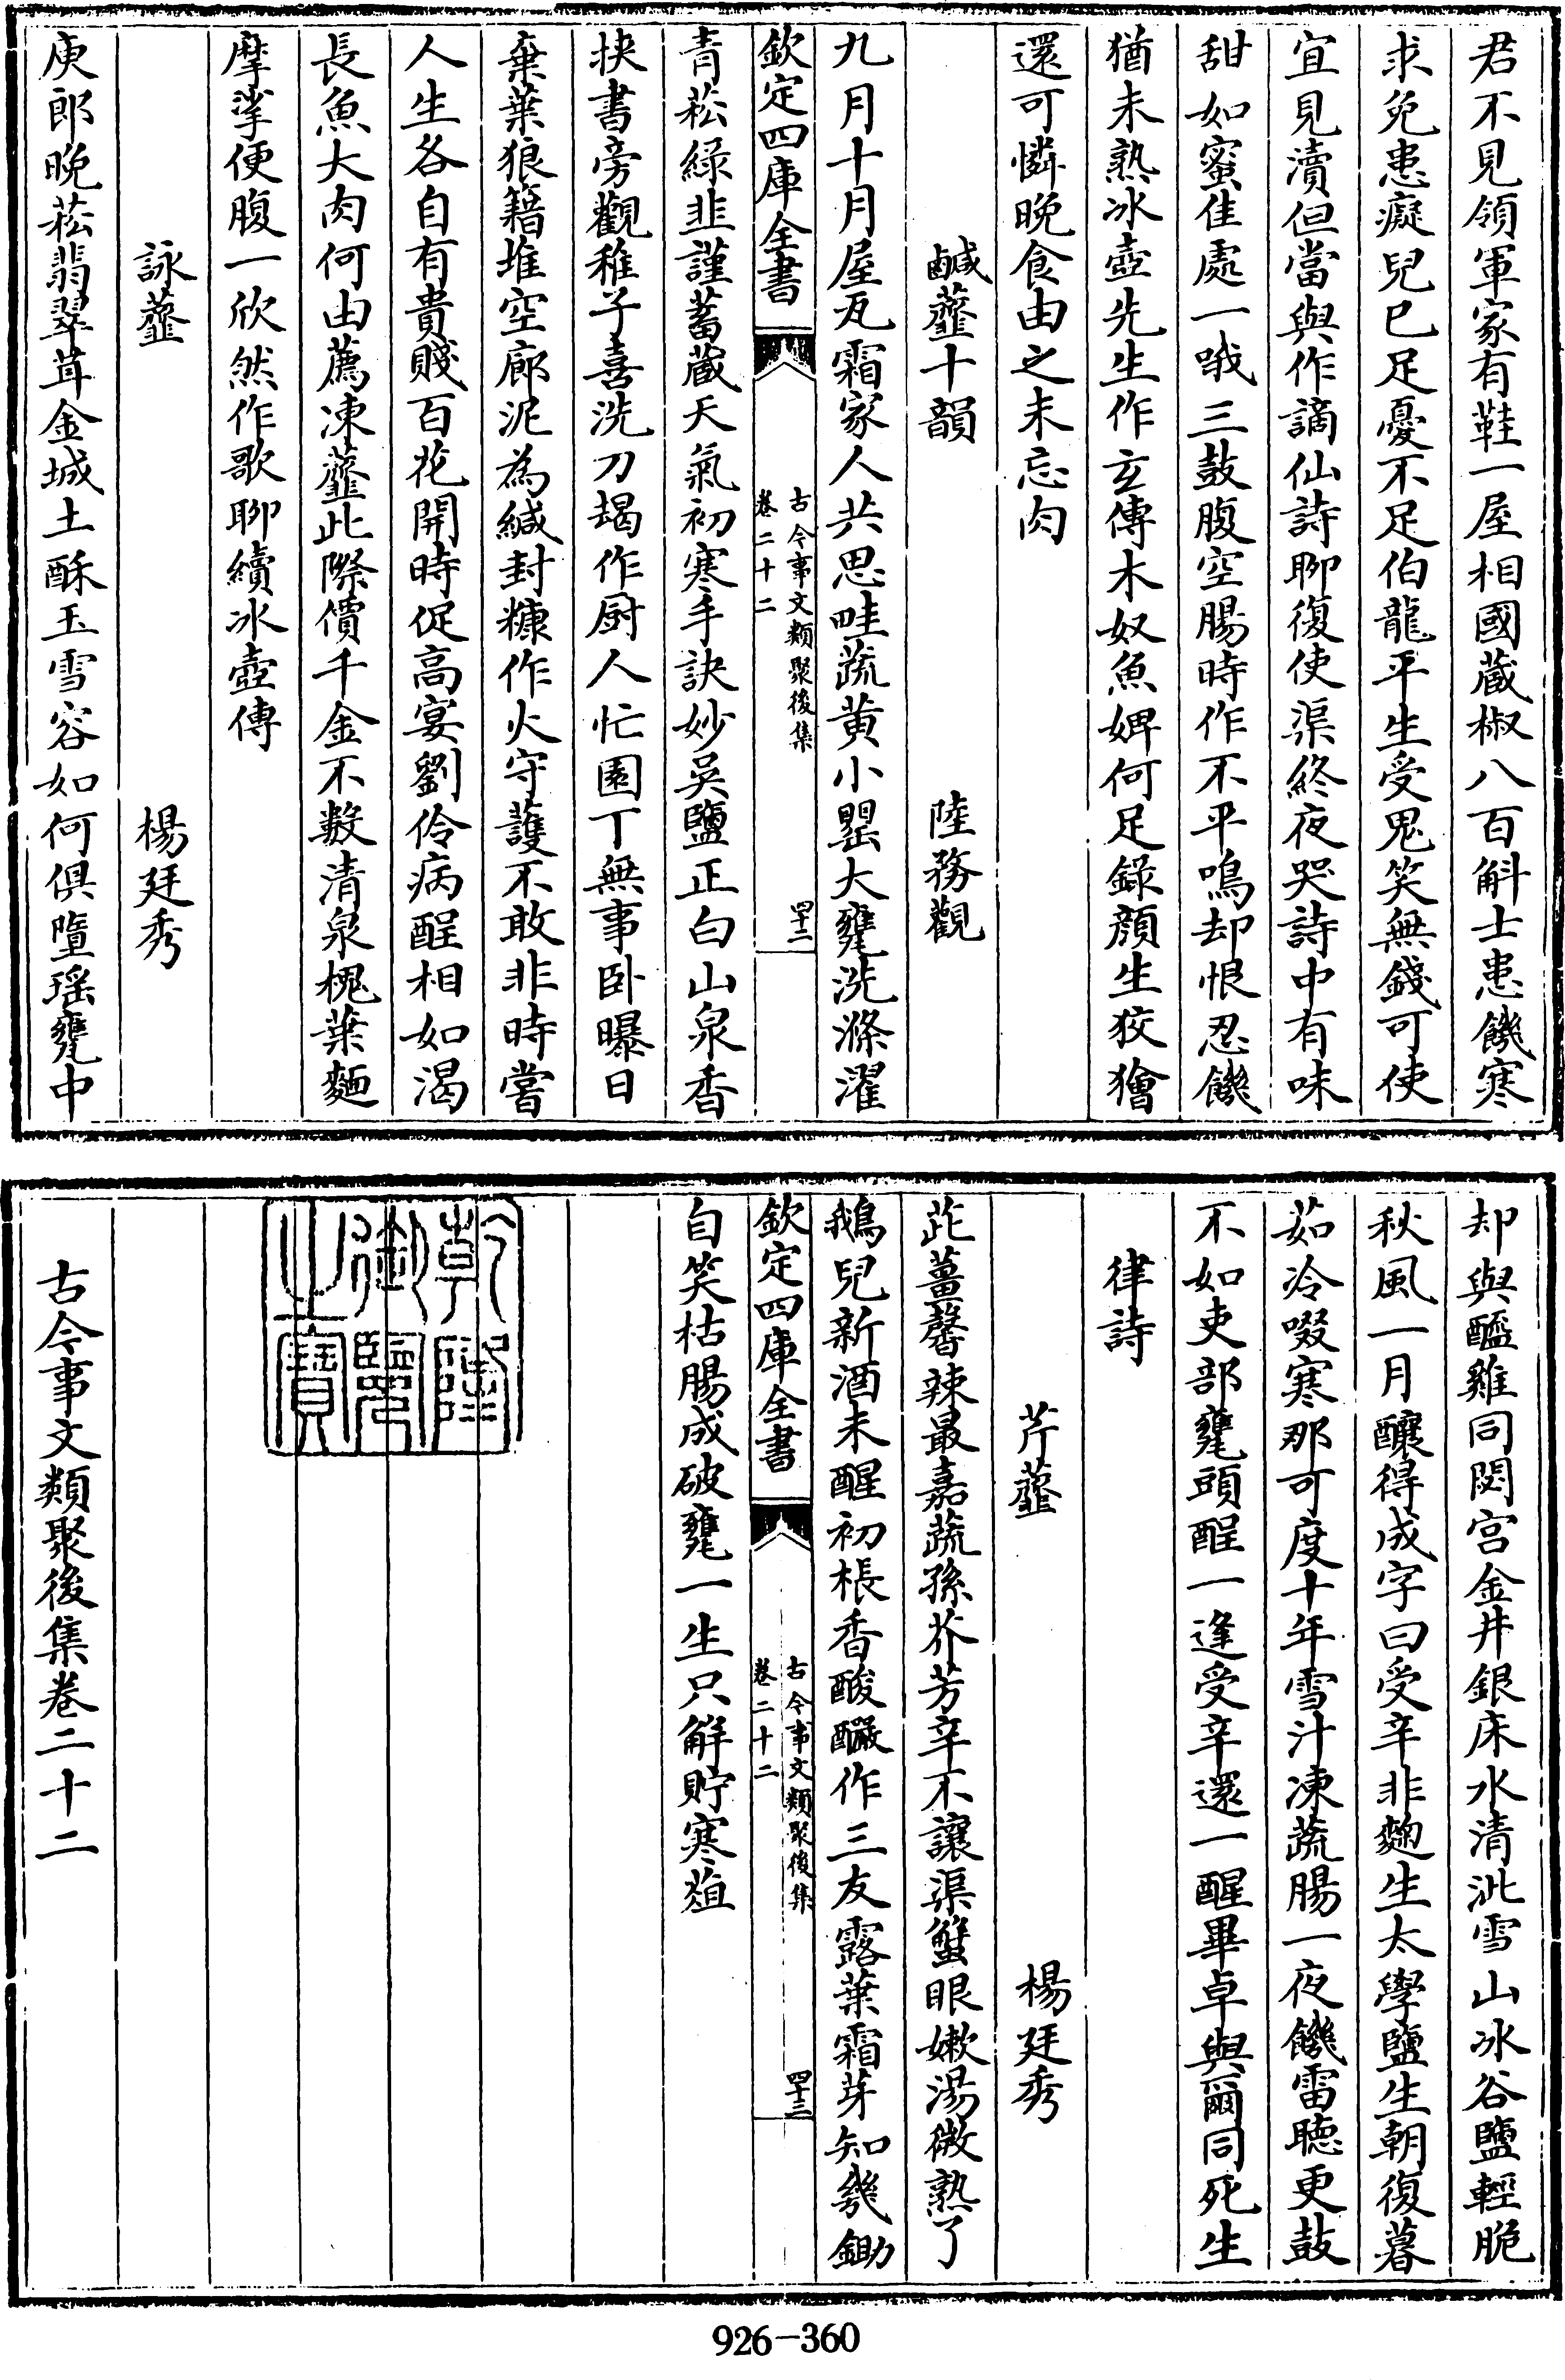 君不見領軍家有鞋一屋相國蔵椒八百斛士患饑寒
求免患癡兒已足憂不足伯龍平生受鬼笑無錢可使
宜見瀆但當與作謫仙詩聊復使渠終夜哭詩中有味
甜如蜜佳處一哦三鼓腹空腸時作不平鳴却恨忍饑
猶未熟冰壺先生作玄傳木奴魚婢何足錄顔生狡獪
還可憐晚食由之未忘肉
鹹虀十韻 陸務觀
九月十月屋瓦霜家人共思畦蔬黄小罌大甕洗滌濯
欽定四庫全書
古今事文類聚後集
卷二十二
四十二
青菘綠韭謹蓄藏天氣初寒手訣妙吳鹽正白山泉香
挾書旁觀稚子喜洗刀竭作厨人忙園丁無事卧曝日
棄葉狼籍堆空廊泥為緘封糠作火守護不敢非時嘗
人生各自有貴賤百花開時促高宴劉伶病酲相如渴
長魚大肉何由薦凍虀此際價千金不數清泉槐葉麵
摩挲便腹一欣然作歌聊續冰壺傳
詠虀 楊廷秀
庾郎晚菘翡翠茸金城土酥玉雪容如何俱墮瑶甕中
却與醯雞同閟宫金井銀床水清泚雪山冰谷鹽輕脆
秋風一月釀得成字曰受辛非麴生太學鹽生朝復暮
茹冷啜寒那可度十年雪汁凍蔬腸一夜饑雷聴更鼓
不如吏部甕頭酲一逢受辛還一醒畢卓與爾同死生
律詩
芹虀 楊廷秀
茈薑馨辣最嘉蔬孫芥芳辛不讓渠蟹眼嫩湯微熟了
鵝兒新酒未醒初棖香酸釅作三友露葉霜芽知幾鋤
欽定四庫全書
古今事文類聚後集
卷二十二
四十三
自笑枯腸成破甕一生只解貯寒葅
乾隆
御覽
之寶
古今事文類聚後集卷二十二
926-360